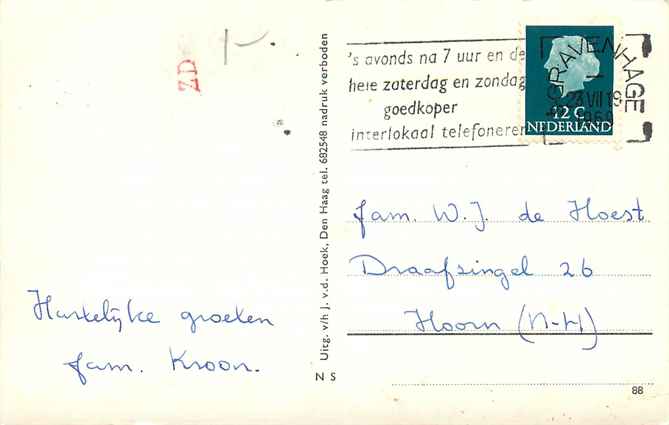 1-
ZD
's avonds na 7 uur en de
hele zaterdag en zondag
goedkoper
interlokaal telefoneren
'S GRAVENHAGE
23 VII 19
1969
12 C
NEDERLAND
Uitg. v/h J. v.d. Hoek, Den Haag tel. 682548 nadruk verboden
fam. W.J. de Hoest
Draafsingel 26
Hoorn (N-H)
Hartelijke groeten
fam. Kroon.
N S
88